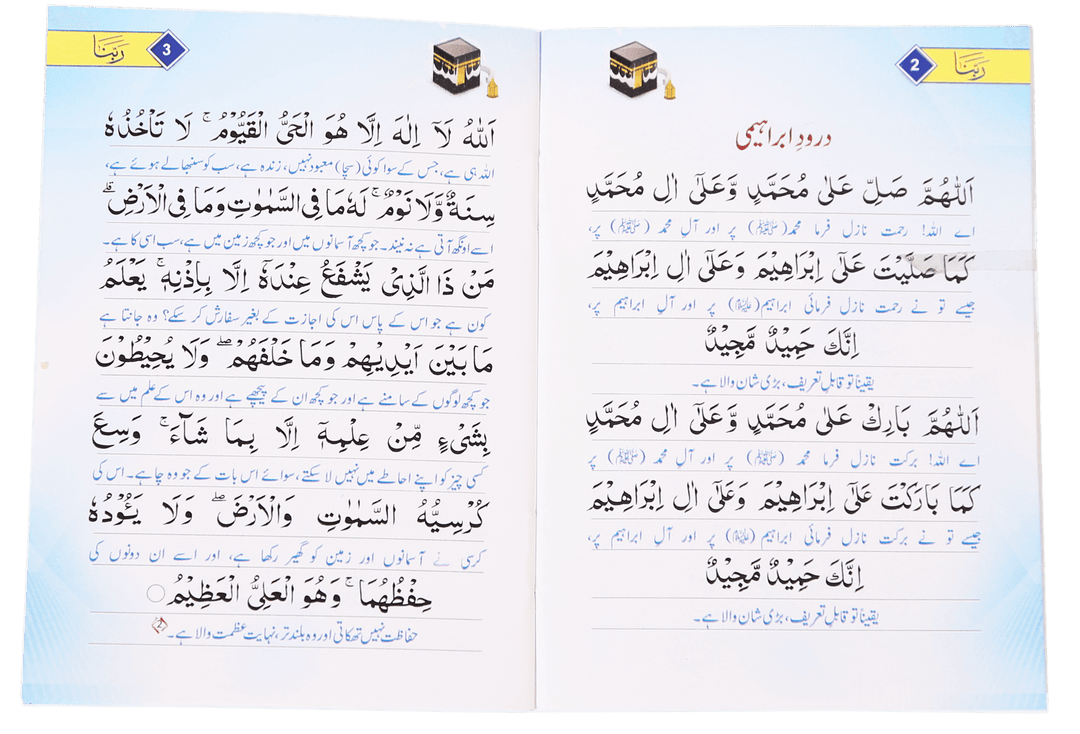 2
ربنا
درودِ ابراہیمی
اَللّٰهُمَّ صَلِّ عَلٰى مُحَمَّدٍ وَّعَلٰٓى اٰلِ مُحَمَّدٍ
اے اللہ! رحمت نازل فرما محمد(ﷺ) پر اور آلِ محمد (ﷺ) پر،
كَمَا صَلَّيْتَ عَلٰٓى اِبْرَاهِيْمَ وَعَلٰٓى اٰلِ اِبْرَاهِيْمَ
جیسے تو نے رحمت نازل فرمائی ابراہیم(علیہ السلام) پر اور آلِ ابراہیم پر،
اِنَّكَ حَمِيْدٌ مَّجِيْدٌ
یقیناً تو قابلِ تعریف، بڑی شان والا ہے۔
اَللّٰهُمَّ بَارِكْ عَلٰى مُحَمَّدٍ وَّعَلٰٓى اٰلِ مُحَمَّدٍ
اے اللہ! برکت نازل فرما محمد (ﷺ) پر اور آلِ محمد (ﷺ) پر
كَمَا بَارَكْتَ عَلٰٓى اِبْرَاهِيْمَ وَعَلٰٓى اٰلِ اِبْرَاهِيْمَ
جیسے تو نے برکت نازل فرمائی ابراہیم (علیہ السلام) پر اور آلِ ابراہیم پر،
اِنَّكَ حَمِيْدٌ مَّجِيْدٌ
یقیناً تو قابلِ تعریف، بڑی شان والا ہے۔
3
ربنا
اَللّٰهُ لَآ اِلٰهَ اِلَّا هُوَ الْحَيُّ الْقَيُّوْمُ ۚ لَا تَاْخُذُهٗ
اللہ ہی ہے، جس کے سوا کوئی (سچا) معبود نہیں، زندہ ہے، سب کو سنبھالے ہوئے ہے،
سِنَةٌ وَّلَا نَوْمٌ ۚ لَهٗ مَا فِى السَّمٰوٰتِ وَمَا فِى الْاَرْضِ ۗ
اسے اونگھ آتی ہے نہ نیند۔ جو کچھ آسمانوں میں اور جو کچھ زمین میں ہے، سب اسی کا ہے۔
مَنْ ذَا الَّذِىْ يَشْفَعُ عِنْدَهٗٓ اِلَّا بِاِذْنِهٖ ۚ يَعْلَمُ
کون ہے جو اس کے پاس اس کی اجازت کے بغیر سفارش کر سکے؟ وہ جانتا ہے
مَا بَيْنَ اَيْدِيْهِمْ وَمَا خَلْفَهُمْ ۖ وَلَا يُحِيْطُوْنَ
جو کچھ لوگوں کے سامنے ہے اور جو کچھ ان کے پیچھے ہے اور وہ اس کے علم میں سے
بِشَىْءٍ مِّنْ عِلْمِهٖٓ اِلَّا بِمَا شَآءَ ۚ وَسِعَ
کسی چیز کو اپنے احاطے میں نہیں لا سکتے، سوائے اس بات کے جو وہ چاہے۔ اس کی
كُرْسِيُّهُ السَّمٰوٰتِ وَالْاَرْضَ ۖ وَلَا يَـُٔوْدُهٗ
کرسی نے آسمانوں اور زمین کو گھیر رکھا ہے، اور اسے ان دونوں کی
حِفْظُهُمَا ۚ وَهُوَ الْعَلِىُّ الْعَظِيْمُ ۝
حفاظت نہیں تھکاتی اور وہ بلند تر، نہایت عظمت والا ہے۔